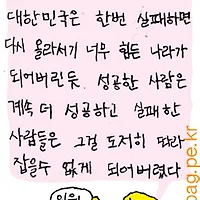 대한민국은 한번 실패하면
다시 올라서기 너무 힘든 나라가
되어버린듯. 성공한 사람은
계속 더 성공하고 실패한
사람들은 그걸 도저히 따라
잡을수 없게 되어버렸다
bag.pe.kr